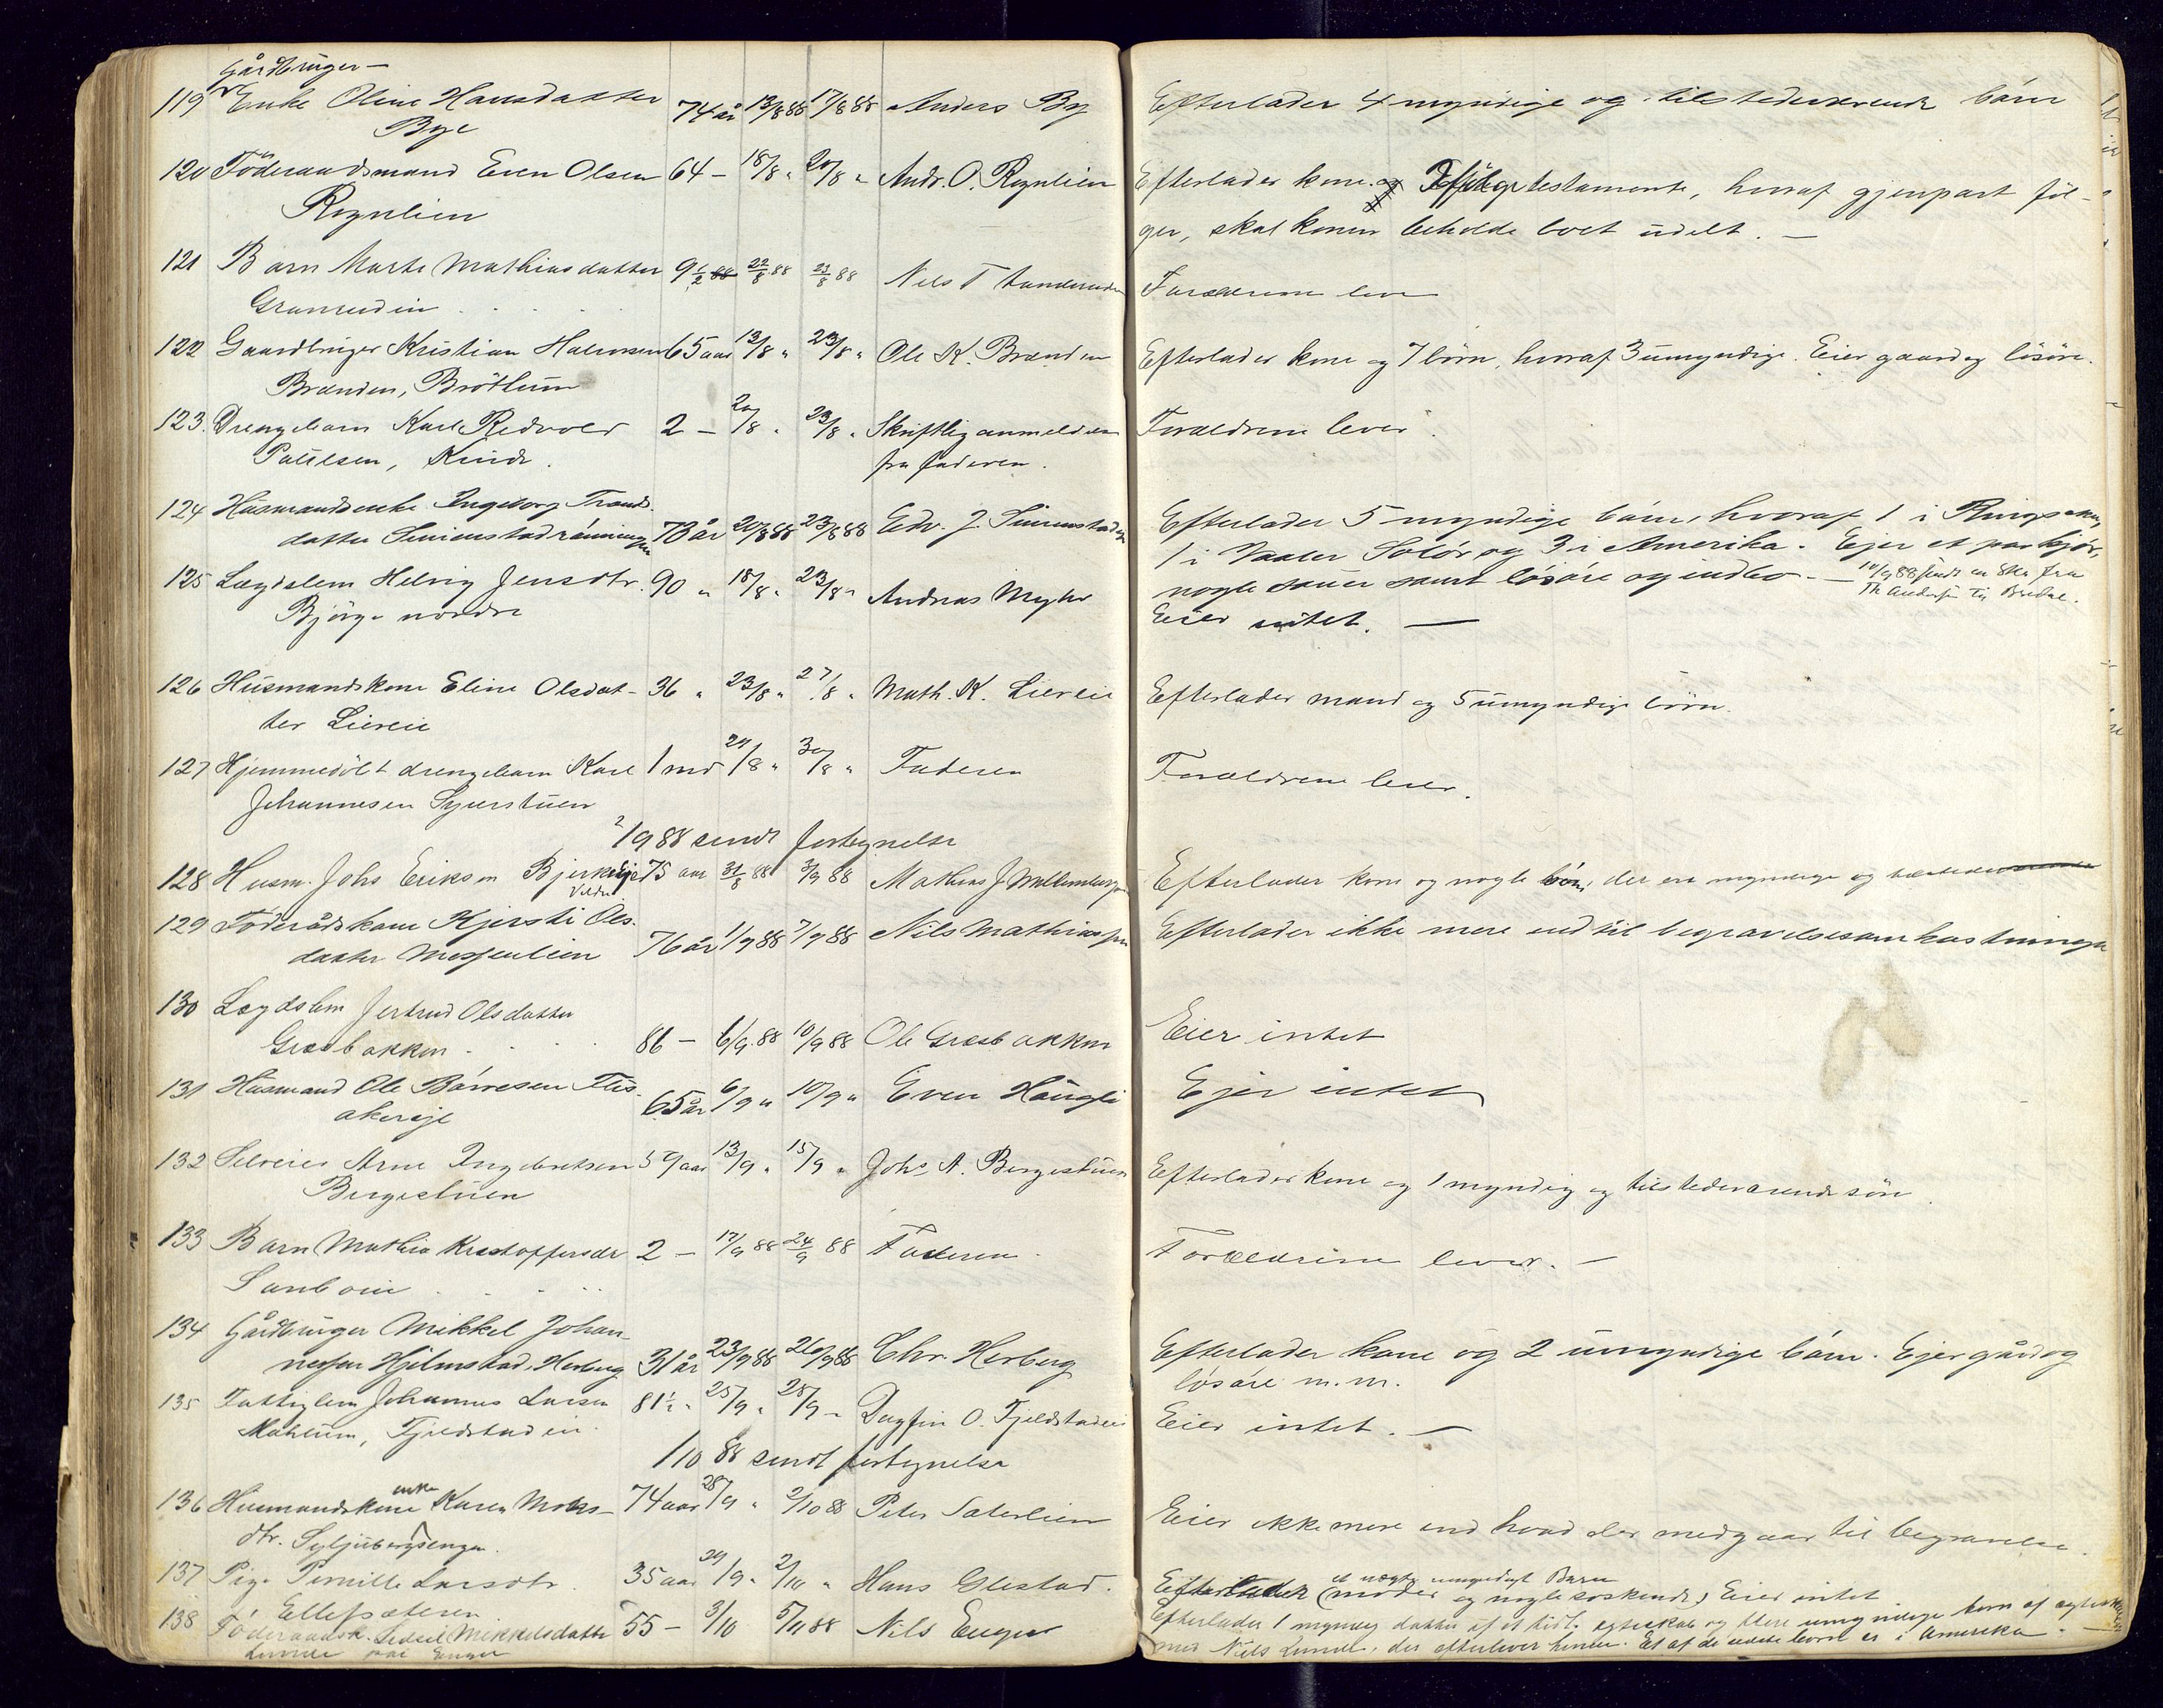 Gårdbruger-
119 Enke Oline Hansdatter 74 år 13/8 88 17/8 88 Anders By Efterlader 4 myndige og tilstedeværende börn
Bye
120 Föderaadsmand Even Olsen 64 – 18/8 " 20/8 " Andr. O. Røgnlien Efterlader kone. Ifølge testamente, hvoraf gjenpart föl-
Røgnlien ger, skal konen beholde boet udelt. —
121 Barn Marte Mathiasdatter 9 1/2 22/8 88 23/8 88 Nils T Forældrene lever
122 Gaardbruger Kristian Halvorsen 65 aar 12/8 " 23/8 " Ole K. Brænden Efterlader kone og 7 börn, hvoraf 3 umyndige. Eier gaard og lösöre.
Brænden, Bröttum
123. Drengebarn Karl Redvold 2 – 20/8 " 23/8 " Skriftlig anmeldelse Forældrene lever.
Paulsen, Kinde. fra faderen.
124 Husmandsenke Ingeborg Trond- 73 år 20/8 88 23/8 88 Edv. J. Efterlader 5 myndige börn, hvoraf 1 i Ringsaker,
datter 1 i Vaaler Solör og 3 i Amerika. Ejer et par kjör,
nogle sauer samt lösöre og indbo. — 10/9 88 sendt en skr fra
Th Andersen til Bredal.
125 Lægdslem Helvig Jensdtr. 90 " 18/8 " 23/8 " Andreas Myhr Eier intet. —
Björge nordre
126 Husmandskone Eline Olsdat- 36 " 23/8 " 27/8 " Math. K. Liereie Efterlader mand og 5 umyndige börn.
ter Liereie
127 Hjemmedöbt drengebarn Karl 1 md 29/8 " 30/8 " Faderen Forældrene lever.
Johannesen
2/9 88 sendt fortegnelse
128 Husm. Johs Eriksen Bjerkeeje 75 aar 31/8 88 3/9 88 Mathias J Efterlader kone og nogle börn, der ere myndige og
129 Föderådskone Kjersti Ols- 76 år 1/9 88 7/9 88 Nils Mathiassen Efterlader ikke mere end til begravelsesomkostninger
datter Messenlien
130 Lægdslem Jertrud Olsdatter
Græsbakken 86 – 6/9 88 10/9 88 Ole Græsbakken Eier intet
131 Husmand Ole Börresen Flis- 65 år 6/9 " 10/9 " Even Haugli Ejer intet
akereje
132 Selveier Arne Ingebretsen 59 aar 13/9 " 15/9 " Johs. A. Bergestuen Efterlader kone og 1 myndig og tilstedeværende sön.
Bergestuen
133 Barn Mathia Kristoffersdr 2 – 17/9 88 24/9 88 Faderen. Forældrene lever. —
134 Gårdbruger Mikkel Johan-
nessen Hjelmstad, Herberg 31 år 23/9 88 26/9 88 Chr. Herberg Efterlader kone og 2 umyndige börn. Ejer gård og
lösöre m.m.
135 Fattiglem Johannes Larsen 81 1/2 " 25/9 " 28/9 – Dagfin O. Fjeldstadeie Eier intet. —
Mæhlum, Fjeldstadeie.
1/10 88 sendt fortegnelse
136 Husmandskone enke Karen Mons- 74 aar 28/9 " 2/10 88 Peter Sæterlien Eier ikke mere end hvad der medgaar til begravelse.
dtr.
137 Pige Pernille Larsdtr. 35 aar 29/9 " 2/10 " Hans Glestad. Efterlader et uægte umyndigt Barn (moder og nogle söskende) Eier intet
Ellefsæteren
138 Föderaadsk. Sidsel Mikkelsdatter 55 – 3/10 5/11 88 Nils Enger Efterlader 1 myndig datter af et tidl. egteskab og flere umyndige børn af egteskab
Lunde paa Enger med Nils Lunde, der efterlever hende. Et af de ældste børn er i Amerika. —